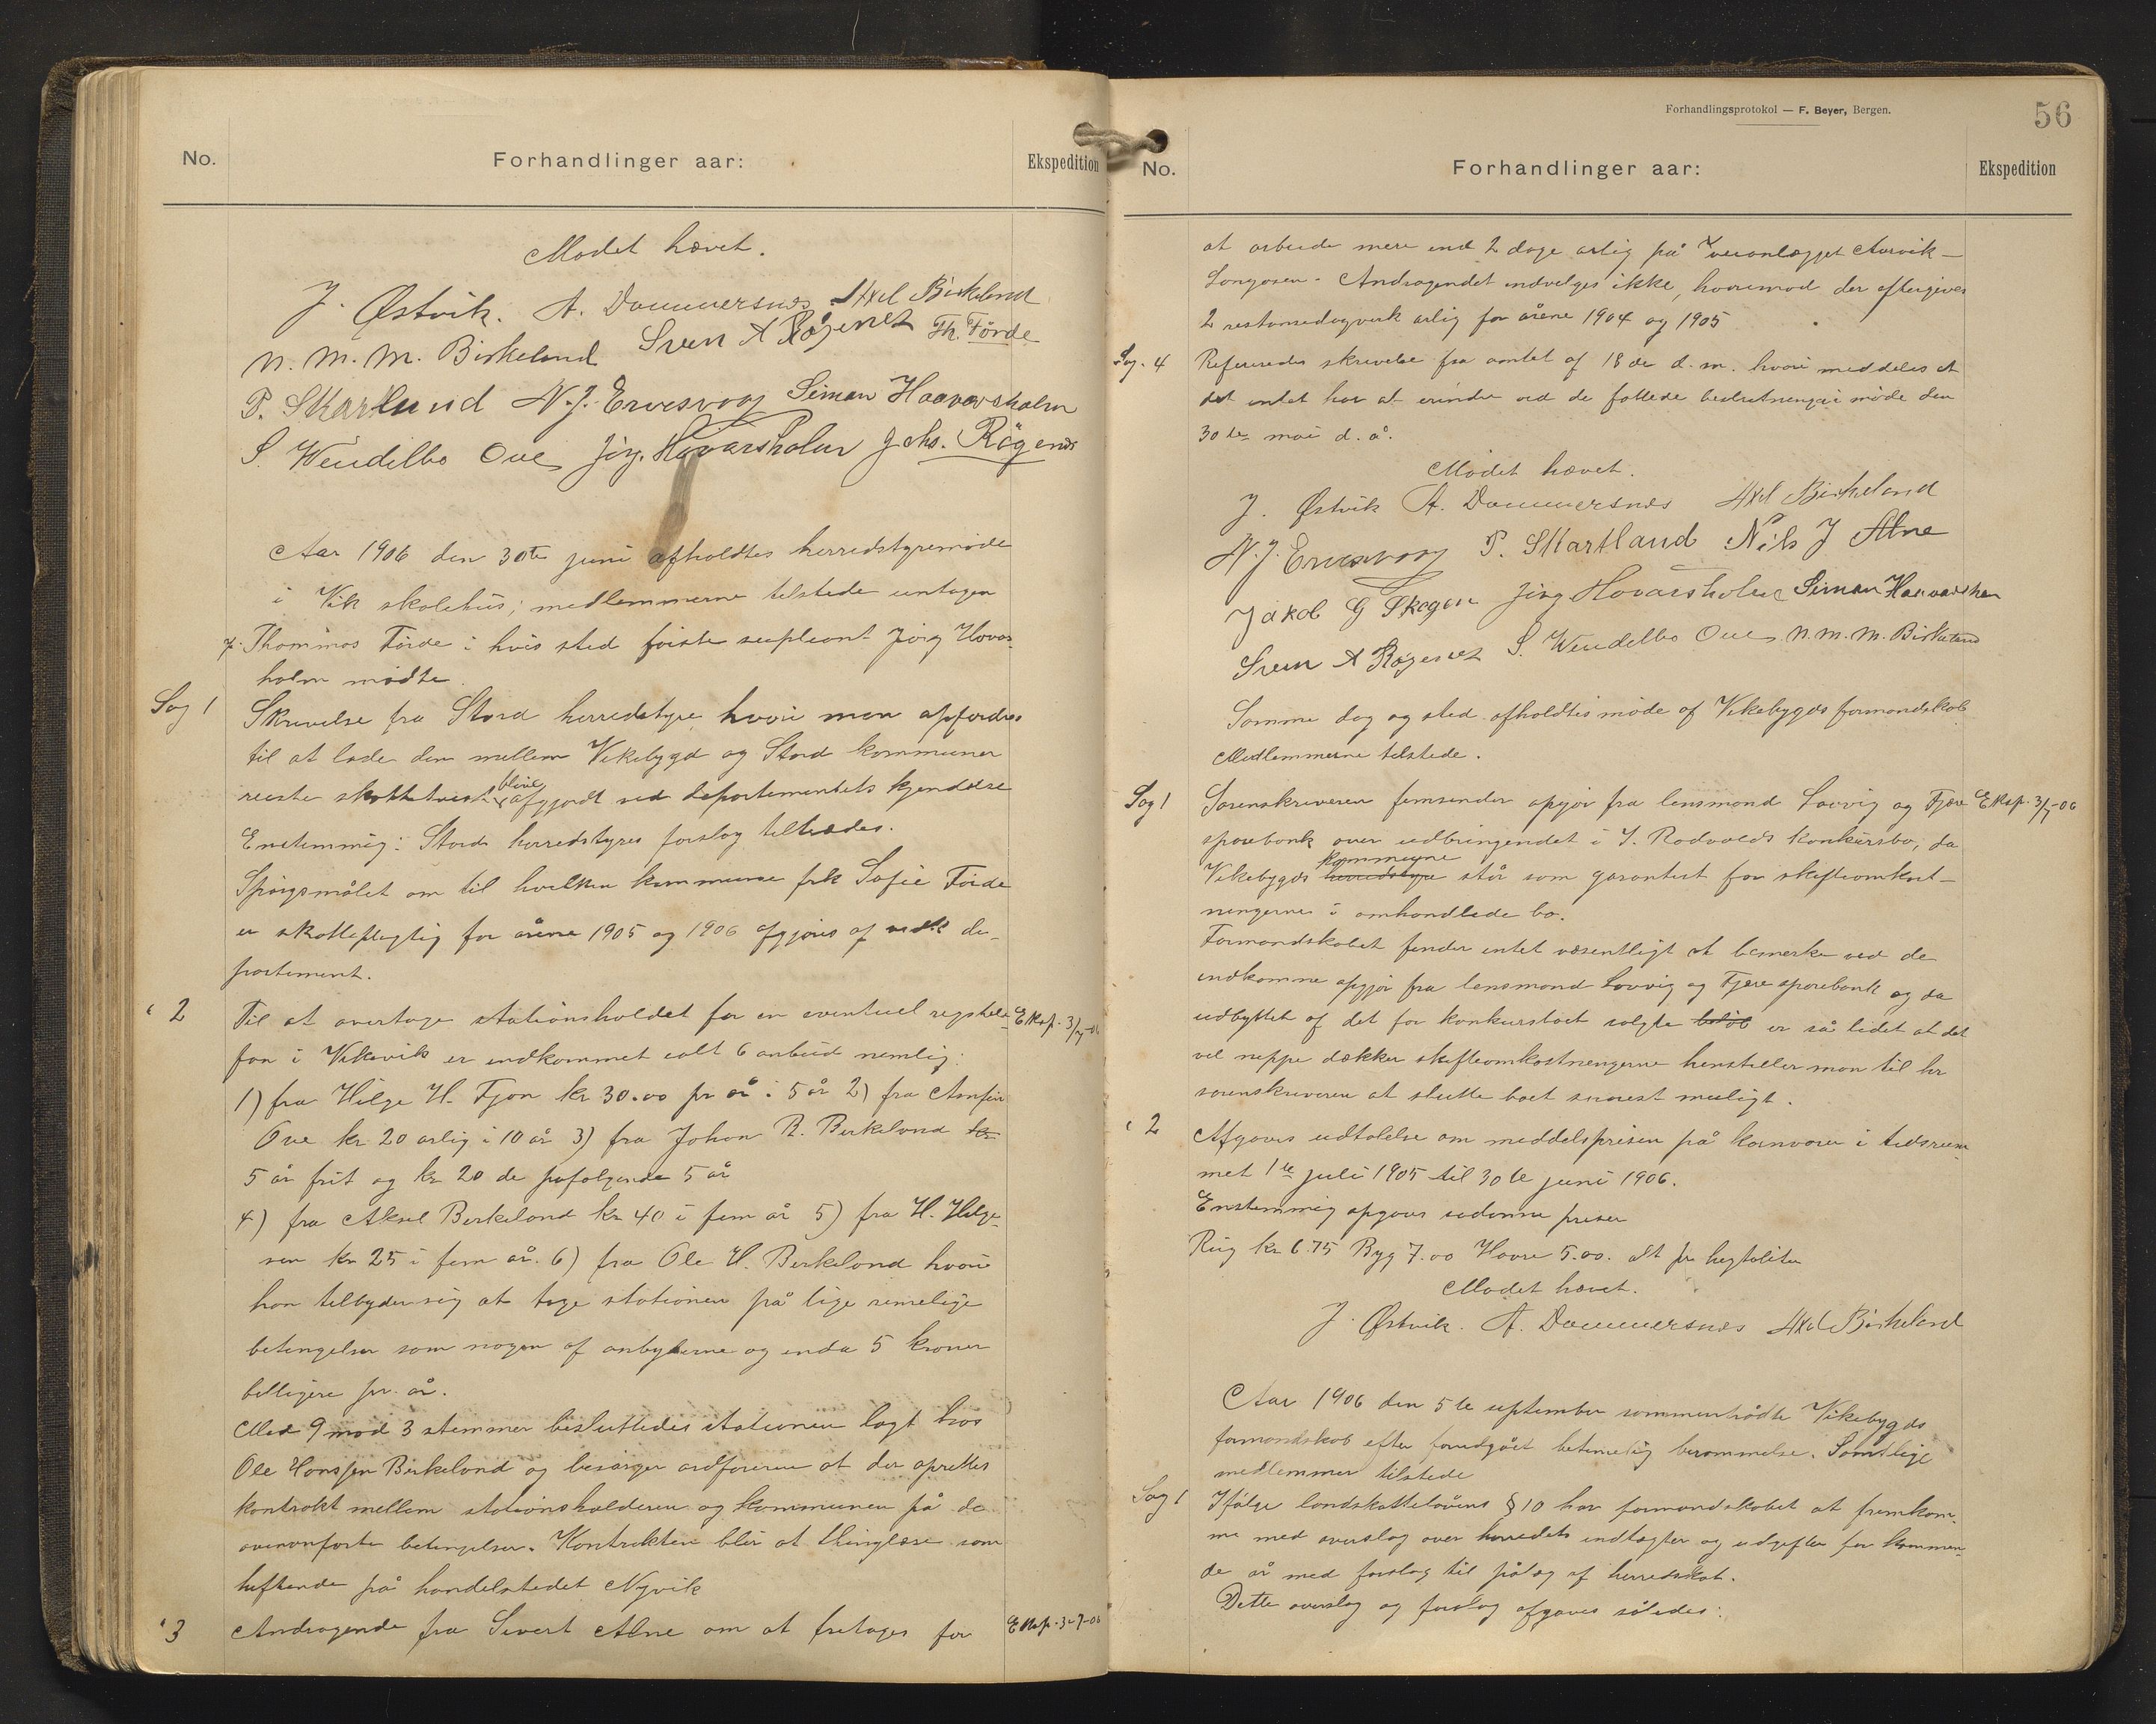 No.
Forhandlinger aar:
Ekspedition
Mødet hævet.
J. Østvik. A. Dommersnes Axel Birkeland
N. M. M. Birkeland Sven A Røgenes Th. Førde
P. Skartland N. J. Ervesvaag Simon Haavarsholm
S. Wendelbo Oue Jørg. Hovarsholm Johs. Røgenes
Aar 1906 den 30te juni afholdtes herredstyremøde
i Vik skolehus; medlemmerne tilstede untagen
Thommas Førde i hvis sted første supleant Jørg Hovars-
holm mødte.
Sag 1
Skrivelse fra Stord herredstyre, hvori man opfordres
til at lade den mellem Vikebygd og Stord kommuner
reiste skattetvist blive afgjordt ved departementets kjendelse
Enstemmig: Stords herredstyres forslag tiltrædes.
Spørgsmålet om til hvilken kommune frk Sofie Førde
er skattepligtig for årene 1905 og 1906 afgjøres af vedk de-
partement.
" 2
Til at overtage stationsholdet for en eventuel rigstele-
Eksp. 3/7-06
fon i Vikevik er indkommet ialt 6 anbud nemlig:
1) fra Helge H. Fjon kr 30.00 pr år i 5 år 2) fra Arnfin
Ove kr 20 årlig i 10 år 3) fra Johan R. Birkeland kr
5 år frit og kr 20 de påfølgende 5 år
4) fra Aksel Birkeland kr 40 i fem år 5) fra H. Helge-
sen kr 25 i fem år. 6) fra Ole H. Birkeland hvori
han tilbyder sig at tage stationen på lige rimelige
betingelser som nogen af anbyderne og enda 5 kroner
billigere pr. år.
Med 9 mod 3 stemmer besluttedes stationen lagt hos
Ole Hansen Birkeland og besørger ordføreren at der oprettes
kontrakt mellem stationsholderen og kommunen på de
ovenanførte betingelser. Kontrakten blir at thinglæse som
heftende på handelstedet Nyvik
" 3
Andragende fra Sivert Alne om at fritages for
Eksp. 3-7-06
Forhandlingsprotokol — F. Beyer, Bergen.
56
No.
Forhandlinger aar:
Ekspedition
at arbeide mere end 2 dage årlig på veianlægget Aarvik—
Longåsen. Andragendet indvilges ikke, hvorimod der eftergives
2 restansedagverk årlig for årene 1904 og 1905
Sag. 4
Refereredes skrivelse fra amtet af 18de d. m. hvori meddeles at
det intet har at erindre ved de fattede beslutninger i møde den
30te mai d. å.
Mødet hævet.
J. Østvik A. Dommersnes Axel Birkeland
N. J. Ervesvaag P. Skartland Nils J Alne
Jakob G Skogen Jørg Hovarsholm Simon Haavarsholm
Sven A Røgenes S. Wendelbo Oue N. M. M. Birkeland
Samme dag og sted afholdtes møde af Vikebygds formandskab
Medlemmerne tilstede.
Sag 1
Sorenskriveren fremsender opgjør fra lensmand Løvvig og Fjære
Eksp. 3/7-06
sparebank over udbringendet i J. Rodvolds konkursbo, da
Vikebygds herredstyre kommune står som garantist for skifteomkost-
ningerne i omhandlede bo.
Formandskabet finder intet væsentligt at bemerke ved de
indkomne opgjør fra lensmand Løvvig og Fjære sparebank og da
udbyttet af det for konkursboet solgte beløb er så lidet at det
vel neppe dækker skifteomkostningerne henstiller man til hr
sorenskriveren at slutte boet snarest muligt.
" 2
Afgaves udtalelse om middelprisen på kornvarer i tidsrum-
met 1te juli 1905 til 30te juni 1906.
Enstemmig opgaves sådanne priser
Rug kr 6.75 Byg 7.00 Havre 5.00. alt pr hegtoliter
Mødet hævet.
J. Østvik. A. Dommersnes Axel Birkeland
Aar 1906 den 5te september sammentrådte Vikebygds
formandskab efter forudgået betimelig berammelse. Samtlige
medlemmer tilstede
Sag 1
Ifølge landskattelovens § 10 har formandskabet at fremkom-
me med overslag over herredets indtægter og udgifter for kommen-
de år med forslag til pålæg af herredskat.
Dette overslag og forslag afgaves således: